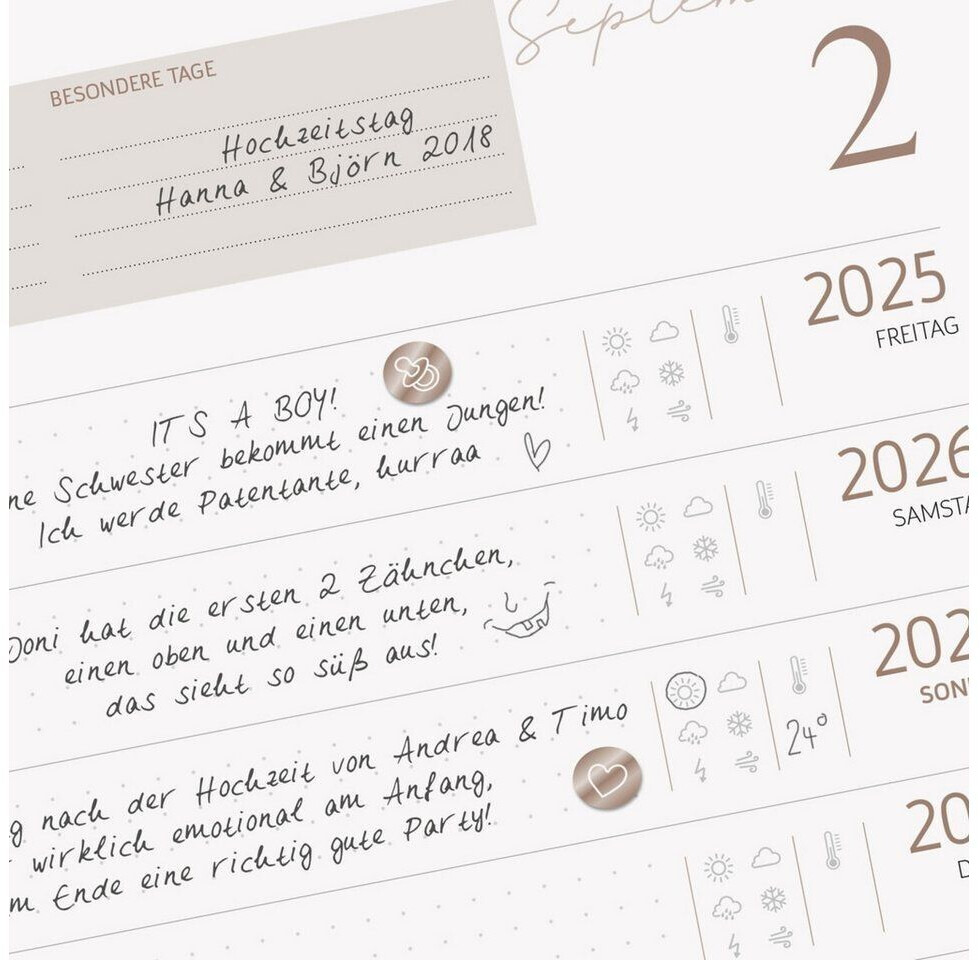 Septem
2
BESONDERE TAGE
Hochzeitstag
Hanna & Björn 2018
2025
FREITAG
IT'S A BOY!
ne Schwester bekommt einen Jungen!
Ich werde Patentante, hurraa
2026
SAMSTA
hat die ersten 2 Zähnchen,
einen oben und einen unten,
das sieht so süß aus!
202
SON
g nach der Hochzeit von Andrea & Timo
wirklich emotional am Anfang,
m Ende eine richtig gute Party!
24°
20
D